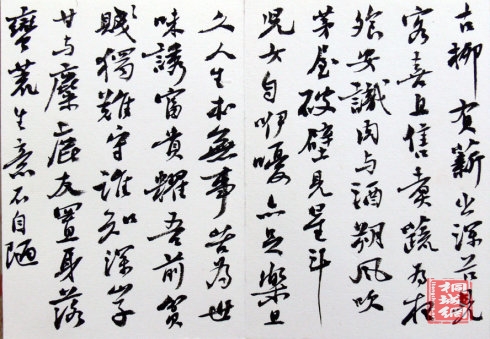 古柳負薪出深谷見
客喜且售煮蔬為夜
飧安識肉与酒朔風吹
茅屋破壁見星斗
兒女自咿嚘亦足樂且
久人生本無事苦為世
味誘富貴耀吾前貧
賤獨難守誰知深山子
甘与麋鹿友置身落
蠻荒生意不自陋
桐城網